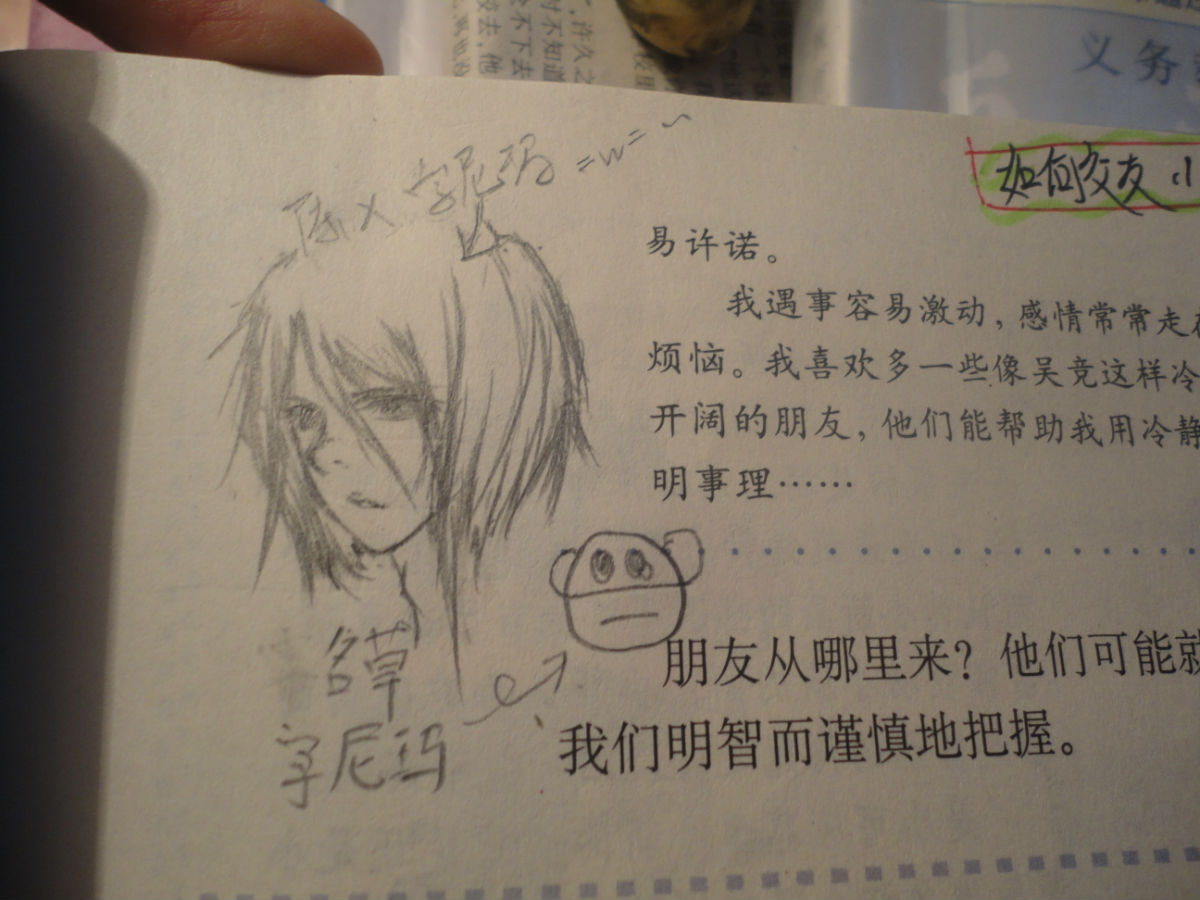 义务
如何交友
陈X 字尼玛 =w=~
易许诺。
我遇事容易激动,感情常常走
烦恼。我喜欢多一些像吴竞这样冷
开阔的朋友,他们能帮助我用冷静
明事理……
朋友从哪里来?他们可能就
我们明智而谨慎地把握。
名草
字尼玛